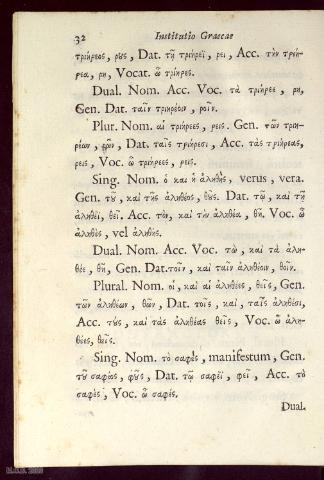 32 Institutio Graecae
τριήρεος, ρους, Dat. τῇ τριήρεϊ, ρει, Acc. τὴν τριή-
ρεα, ρη, Vocat. ὦ τρίηρες.
Dual. Nom. Acc. Voc. τὰ τριήρεε, ρη,
Gen. Dat. ταῖν τριηρέοιν, ροῖν.
Plur. Nom. αἱ τριήρεες, ρεις. Gen. τῶν τριη-
ρέων, ρῶν, Dat. ταῖς τριήρεσι, Acc. τὰς τριήρεας,
ρεις, Voc. ὦ τριήρεες, ρεις.
Sing. Nom. ὁ καὶ ἡ ἀληθὴς, verus, vera.
Gen. τοῦ, καὶ τῆς ἀληθέος, θοῦς. Dat. τῷ, καὶ τῇ
ἀληθέϊ, θεῖ. Acc. τὸν, καὶ τὴν ἀληθέα, θῆ. Voc. ὦ
ἀληθὲς, vel ἀληθής.
Dual. Nom. Acc. Voc. τὼ, καὶ τὰ ἀλη-
θέε, θῆ, Gen. Dat. τοῖν, καὶ ταῖν ἀληθέοιν, θοῖν.
Plural. Nom. οἱ, καὶ αἱ ἀληθέες, θεῖς, Gen.
τῶν ἀληθέων, θῶν, Dat. τοῖς, καὶ, ταῖς ἀληθέσι,
Acc. τοὺς, καὶ τὰς ἀληθέας θεῖς, Voc. ὦ ἀλη-
θέες, θεῖς.
Sing. Nom. τὸ σαφὲς, manifestum, Gen.
τοῦ σαφέος, φοῦς, Dat. τῷ σαφέϊ, φεῖ, Acc. τὸ
σαφὲς, Voc. ὦ σαφές.
Dual.